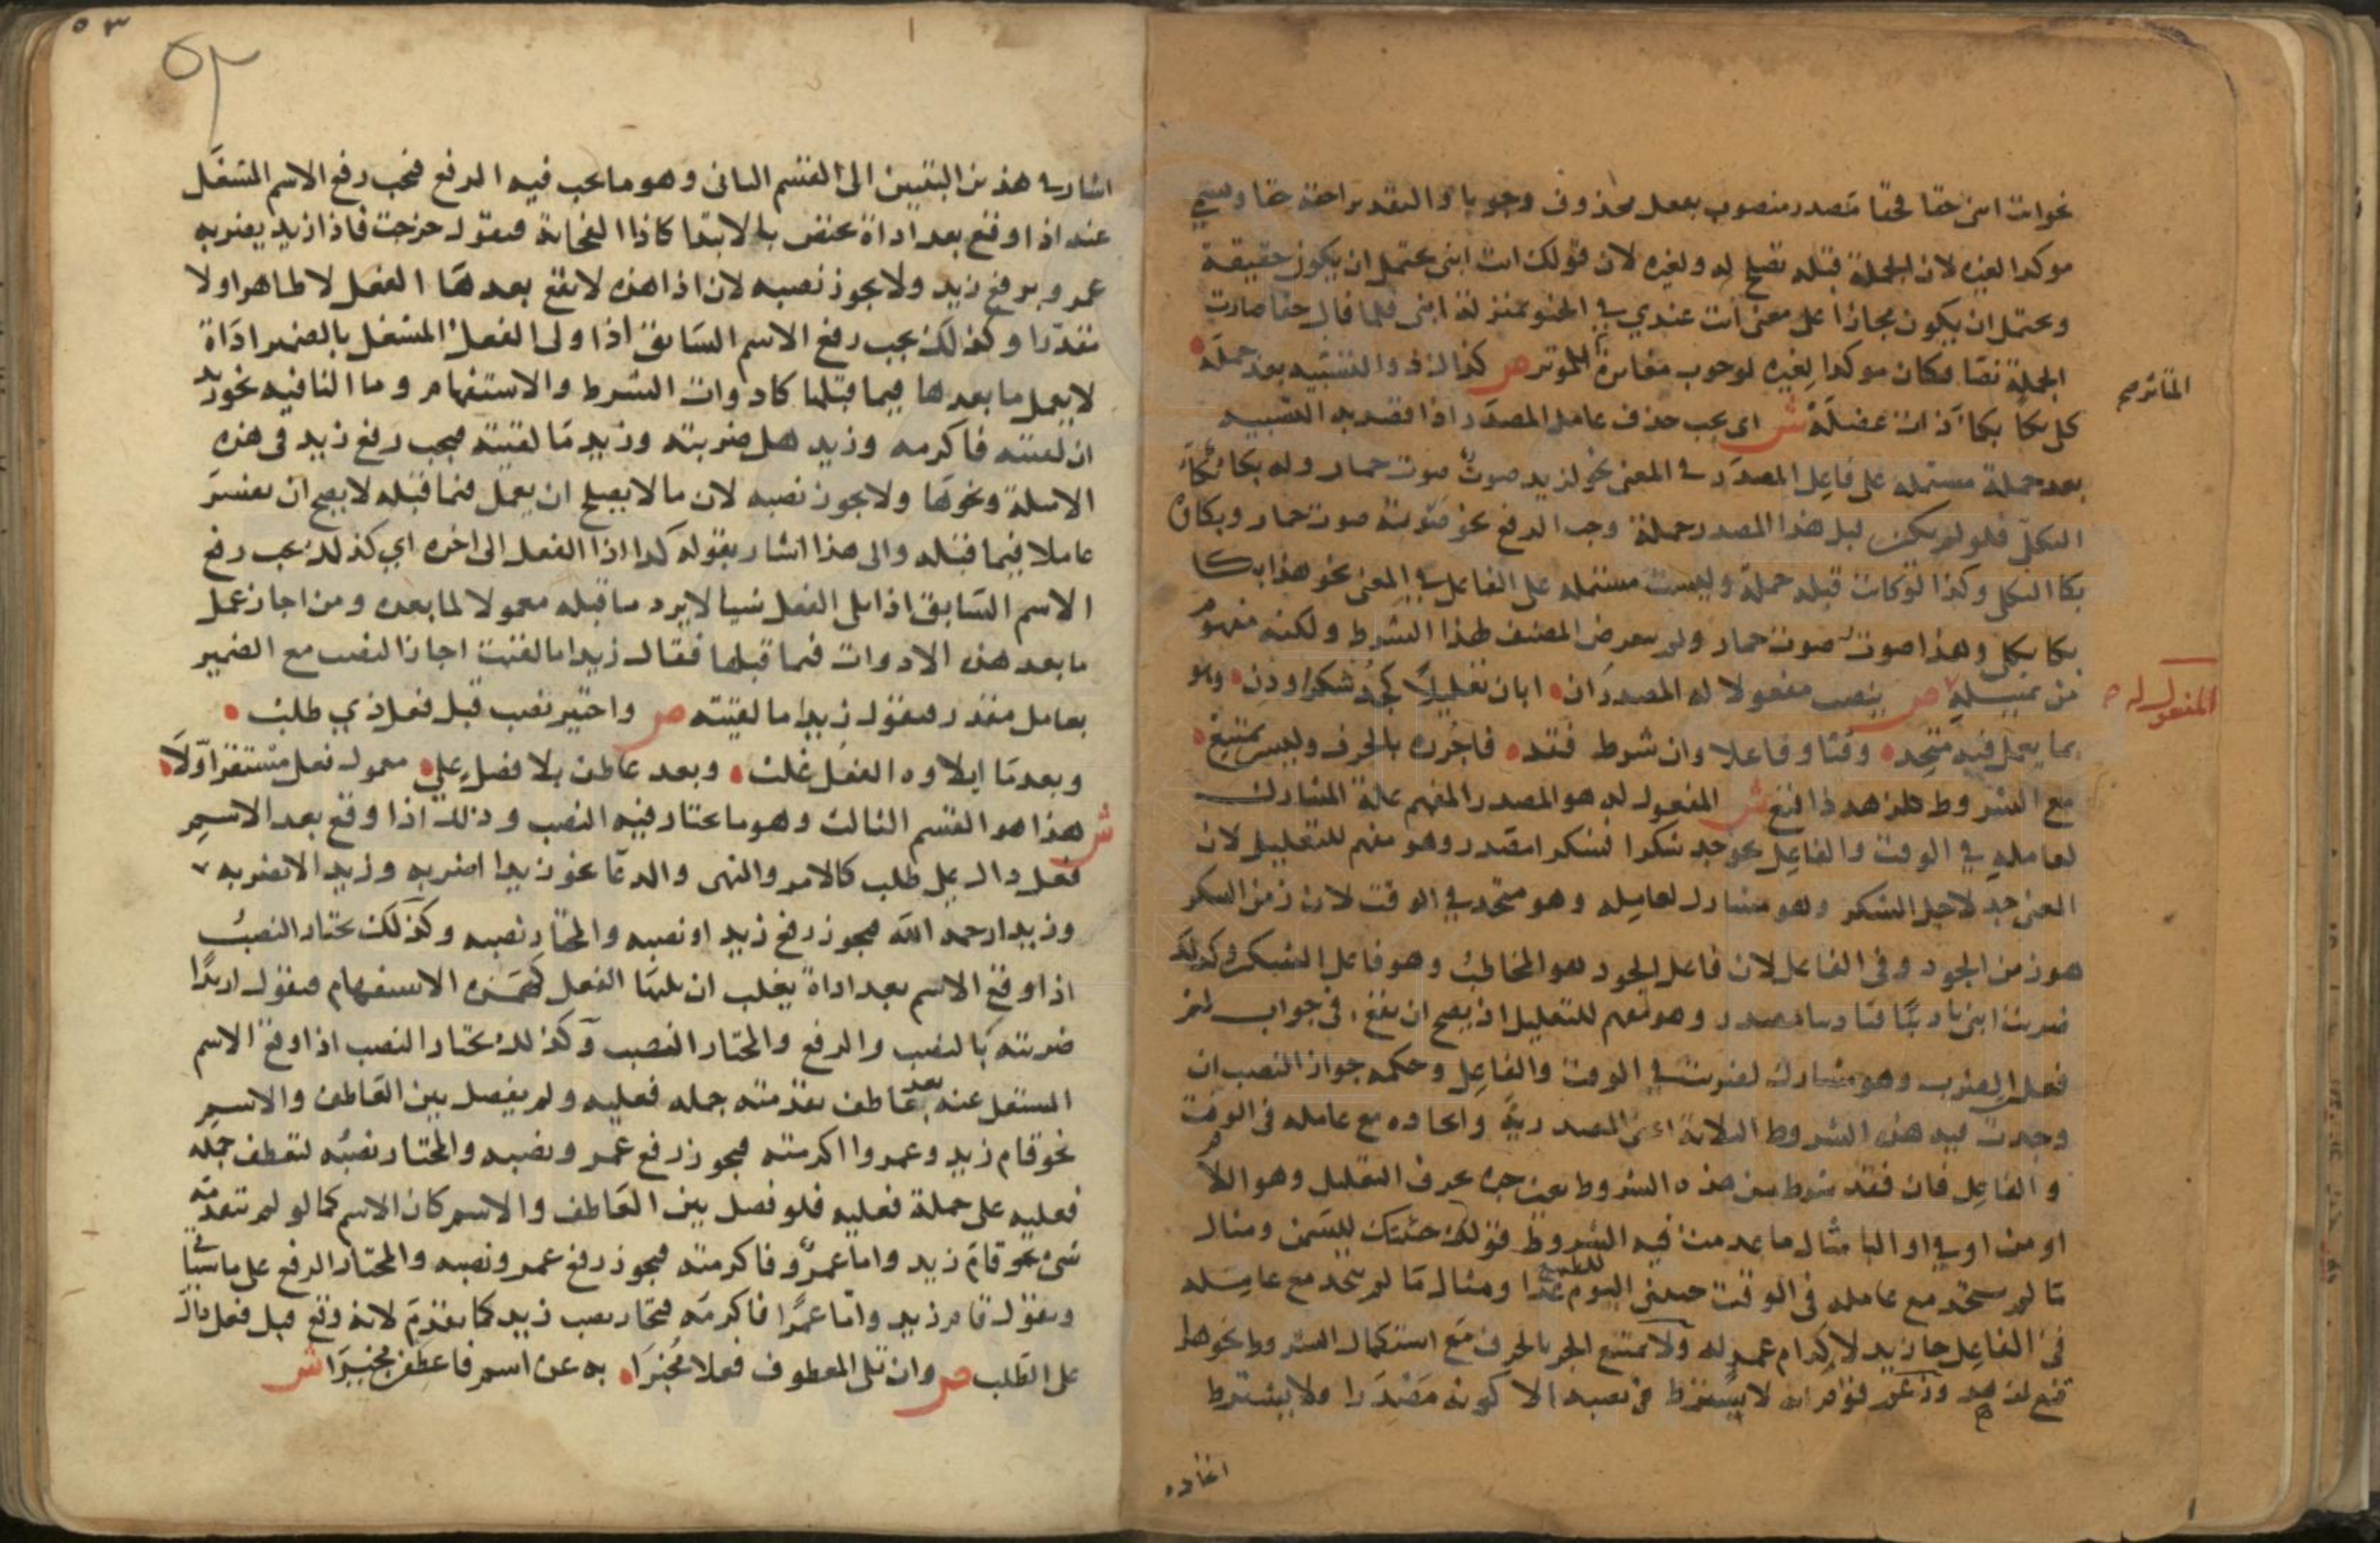 نحو انت ابني حقا فحقا مصدر منصوب بفعل محذوف وجوبا والتقدير احقه حقا وسمي
موكدا لغيره لان الجملة قبله تصلح له ولغيره لان قولك انت ابني يحتمل ان يكون حقيقة
ويحتمل ان يكون مجازا على معنى انت عندي في الحنو بمنزلة ابني فلما قال حقا صارت
الجملة نصا فكان موكدا لغيره لوجوب مغايرة الموثر ص كذا اك ذو التشبيه بعد جملة
كلي بكا بكاء ذات عضلة ش اي يجب حذف عامل المصدر اذا قصد به التشبيه
بعد جملة مشتملة على فاعل المصدر في المعنى نحو لزيد صوت صوت حمار وله بكا بكاء
الثكلى فلو لم يكن قبل هذا المصدر جملة وجب الرفع نحو صوته صوت حمار وبكاؤه
بكا الثكلى وكذا لو كانت قبله جملة وليست مشتملة على الفاعل في المعنى نحو هذا بكا
بكا ثكلى وهذا صوت صوت حمار ولم يتعرض المصنف لهذا الشرط ولكنه مفهوم
من تمثيله ص ينصب مفعولا له المصدر ان ابان تعليلا كجد شكرا ودن وهو
بما يعمل فيه متحد وقتا وفاعلا وان شرط فقد فاجرره بالحرف وليس يمتنع
مع الشروط كلزهد ذا قنع ش المفعول له هو المصدر المفهم علة المشارك
لعامله في الوقت والفاعل نحو جد شكرا فشكرا مصدر وهو مفهم للتعليل لان
المعنى جد لاجل الشكر وهو مشارك لعامله وهو متحد في الوقت لان زمن الشكر
هو زمن الجود وفي الفاعل لان فاعل الجود هو المخاطب وهو فاعل الشكر وكذلك
ضربت ابني تاديبا فتاديبا مصدر وهو مفهم للتعليل اذ يصح ان يقع في جواب لم
فعل الضرب وهو مشارك لضربت في الوقت والفاعل وحكمه جواز النصب ان
وجدت فيه هذه الشروط الثلاثة اعني المصدرية واتحاده مع عامله في الوقت
والفاعل فان فقد شرط من هذه الشروط تعين جره بحرف التعليل وهو اللام
او من او في او البا مثال ما عدمت فيه الشروط قولك جئتك للسمن ومثال
ما لم يتحد مع عامله في الوقت جيتني اليوم للطمع غدا ومثال ما لم يتحد مع عامله
في الفاعل جا زيد لاكرام عمرو له ولا يمتنع الجر بالحرف مع استكمال الشروط نحو هذا
قنع لزهد وزعم قوم انه لا يشترط في نصبه الا كونه مصدرا ولا يشترط
اتحاده
المفعول له
٥٣
٥٣
اشار في هذين البيتين الى القسم الثاني وهو ما يجب فيه الرفع فيجب رفع الاسم المشتغل
عنه اذا وقع بعد اداة تختص بالابتدا كاذا الفجاية فتقول خرجت فاذا زيد يضربه
عمرو برفع زيد ولا يجوز نصبه لان اذا هذه لا يقع بعدها الفعل لا ظاهرا ولا
مقدرا وكذلك يجب رفع الاسم السابق اذا ولي الفعل المشتغل بالضمير اداة
لا يعمل ما بعدها فيما قبلها كادوات الشرط والاستفهام وما النافيه نحو زيد
ان لقيته فاكرمه وزيد هل ضربته وزيد ما لقيته فيجب رفع زيد في هذه
الامثلة ونحوها ولا يجوز نصبه لان ما لا يصلح ان يعمل فيما قبله لا يصح ان يفسر
عاملا فيما قبله والى هذا اشار بقوله كذا اذا الفعل الى اخره اي كذلك يجب رفع
الاسم السابق اذا تلى الفعل شيا لا يرد ما قبله معمولا لما بعده ومن اجاز عمل
ما بعد هذه الادوات فيما قبلها فقال زيدا ما لقيت اجاز النصب مع الضمير
بعامل مقدر فيقول زيدا ما لقيته ص واختير نصب قبل فعل ذي طلب
وبعد ما ايلاوه الفعل غلب وبعد عاطف بلا فصل على معمول فعل مستقر اولا
ش هذا هو القسم الثالث وهو ما يختار فيه النصب وذلك اذا وقع بعد الاسم
فعل دال على طلب كالامر والنهي والدعا نحو زيدا اضربه وزيدا لا تضربه
وزيدا رحمه الله فيجوز رفع زيد او نصبه والمختار نصبه وكذلك يختار النصب
اذا وقع الاسم بعد اداة يغلب ان يليها الفعل كهمزة الاستفهام فيقول ازيدا
ضربته بالنصب والرفع والمختار النصب وكذلك يختار النصب اذا وقع الاسم
المشتغل عنه بعد عاطف تقدمته جمله فعليه ولم يفصل بين العاطف والاسم
نحو قام زيد وعمروا اكرمته فيجوز رفع عمرو ونصبه والمختار نصبه لتعطف جمله
فعليه على جملة فعليه فلو فصل بين العاطف والاسم كان الاسم كما لو لم تتقدمه
شي نحو قام زيد واما عمرو فاكرمته فيجوز رفع عمرو ونصبه والمختار الرفع على ما سياتي
وتقول قام زيد واما عمرا فاكرمه فيختار نصب زيد كما تقدم لانه وقع قبل فعل دال
على الطلب ص وان تلى المعطوف فعلا مخبرا به عن اسم فاعطفن مخيرا ش